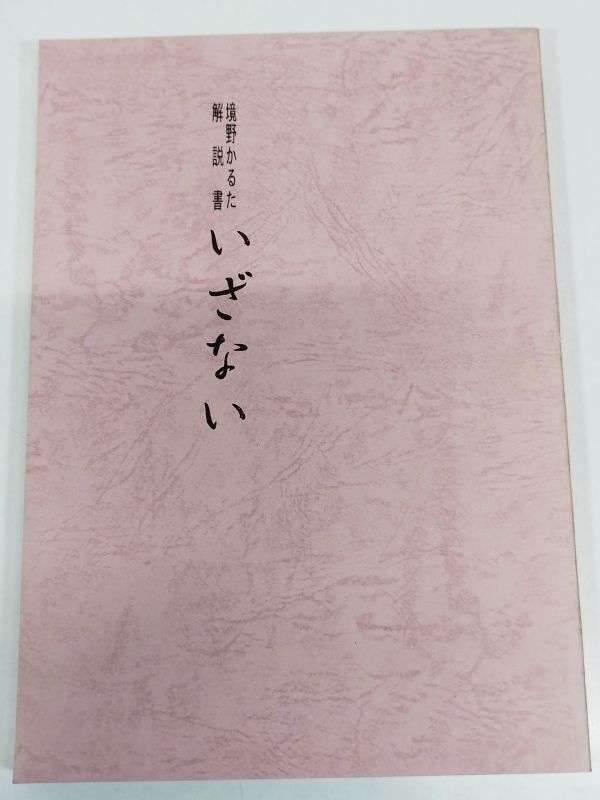 境野かるた
解説書
いざない